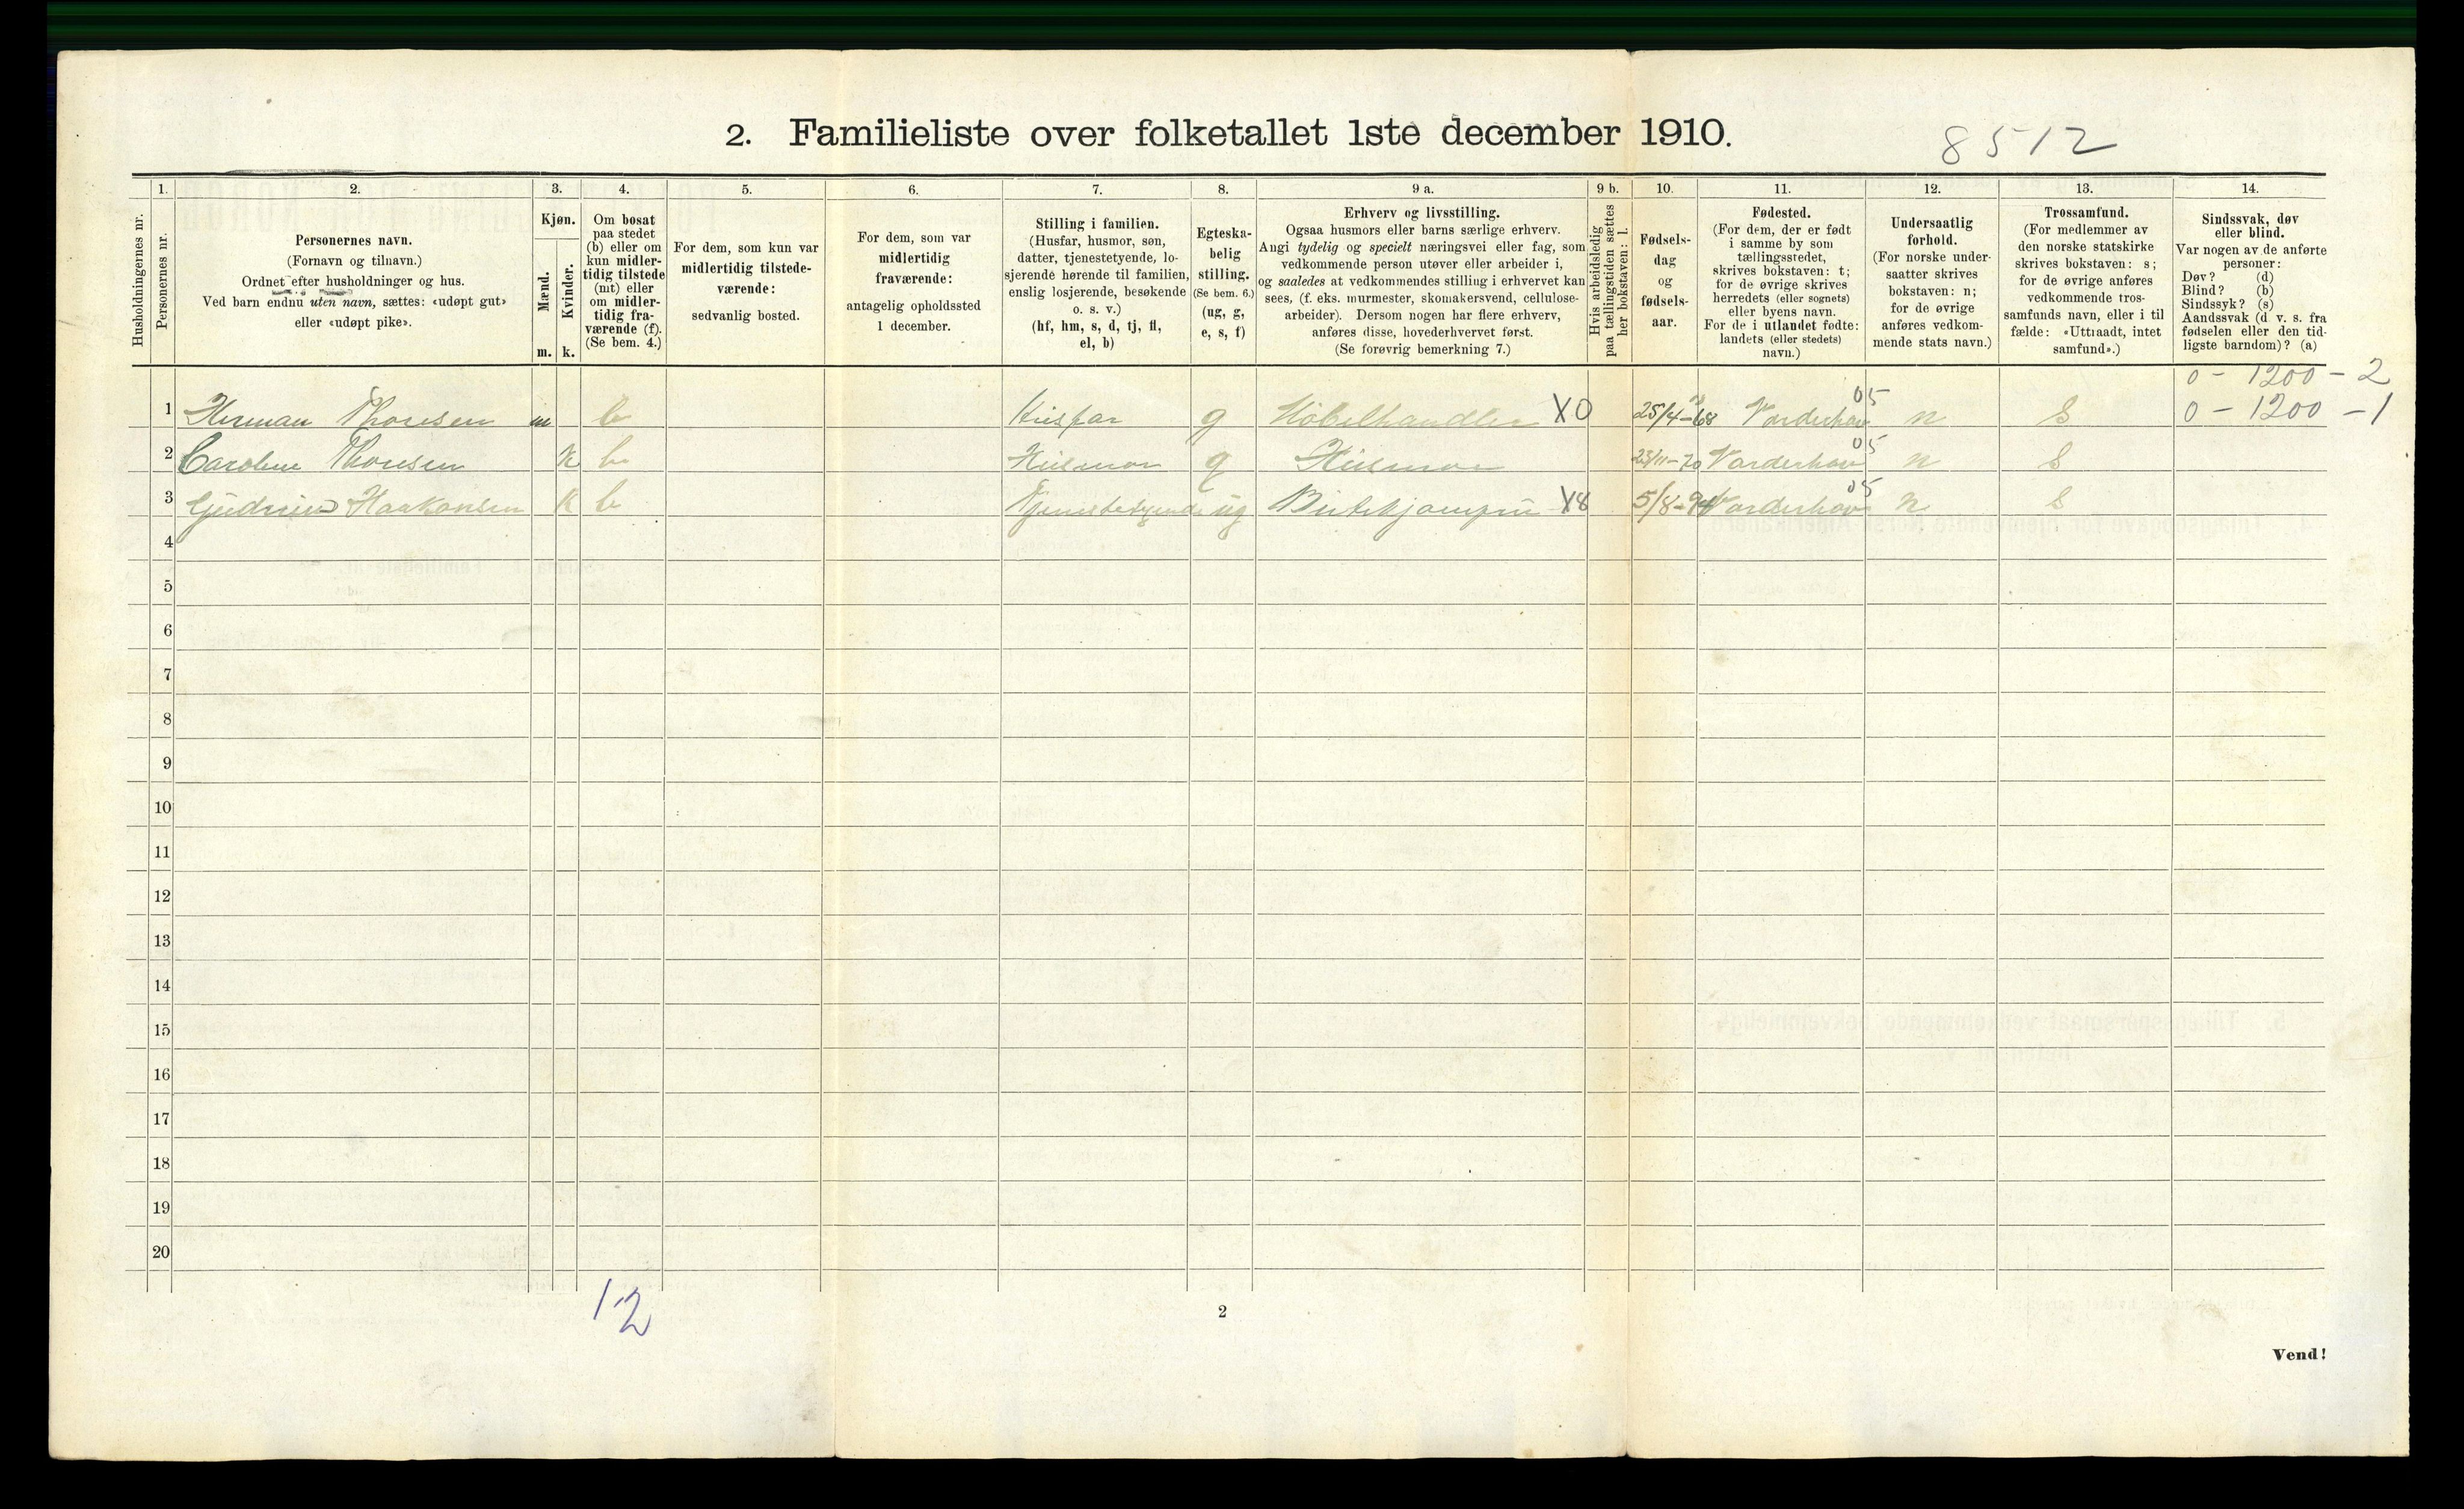 2. Familieliste over folketallet 1ste december 1910.
8512
Husholdningernes nr.
1.
Personernes nr.
2.
Personernes navn.
(Fornavn og tilnavn.)
Ordnet efter husholdninger og hus.
Ved barn endnu uten navn, sættes: «udøpt gut»
eller «udøpt pike».
3.
Kjøn.
Mænd.
Kvinder.
m. k.
4.
Om bosat
paa stedet
(b) eller om
kun midler-
tidig tilstede
(mt) eller
om midler-
tidig fra-
værende (f).
(Se bem. 4.)
5.
For dem, som kun var
midlertidig tilstede-
værende:
sedvanlig bosted.
6.
For dem, som var
midlertidig
fraværende:
antagelig opholdssted
1 december.
7.
Stilling i familien.
(Husfar, husmor, søn,
datter, tjenestetyende, lo-
sjerende hørende til familien,
enslig losjerende, besøkende
o. s. v.)
(hf, hm, s, d, tj, fl,
el, b)
8.
Egteska-
belig
stilling.
(Se bem. 6.)
(ug, g,
e, s, f)
9 a.
Erhverv og livsstilling.
Ogsaa husmors eller barns særlige erhverv.
Angi tydelig og specielt næringsvei eller fag, som
vedkommende person utøver eller arbeider i,
og saaledes at vedkommendes stilling i erhvervet kan
sees, (f. eks. murmester, skomakersvend, cellulose-
arbeider). Dersom nogen har flere erhverv,
anføres disse, hovederhvervet først.
(Se forøvrig bemerkning 7.)
9 b.
Hvis arbeidsledig
paa tællingstiden sættes
her bokstaven: l.
10.
Fødsels-
dag
og
fødsels-
aar.
11.
Fødested.
(For dem, der er født
i samme by som
tællingsstedet,
skrives bokstaven: t;
for de øvrige skrives
herredets (eller sognets)
eller byens navn.
For de i utlandet fødte:
landets (eller stedets)
navn.)
12.
Undersaatlig
forhold.
(For norske under-
saatter skrives
bokstaven: n;
for de øvrige
anføres vedkom-
mende stats navn.)
13.
Trossamfund.
(For medlemmer av
den norske statskirke
skrives bokstaven: s;
for de øvrige anføres
vedkommende tros-
samfunds navn, eller i til
fælde: «Uttraadt, intet
samfund».)
14.
Sindssvak, døv
eller blind.
Var nogen av de anførte
personer:
Døv? (d)
Blind? (b)
Sindssyk? (s)
Aandssvak (d. v. s. fra
fødselen eller den tid-
ligste barndom)? (a)
0 - 1200 - 2
1 Herman Thoresen m b Husfar g Möbelhandler X0 25/4-68 Vorderhov 05 n S 0 - 1200 - 1
2 Caroline Thoresen k b Husmor g Husmor 23/11-70 Vorderhov 05 n S
3 Gudrun Haakonsen k b Tjenestetyende ug X8 5/8-94 Vorderhov 05 n S
4
5
6
7
8
9
10
11
12
13
14
15
16
17
18
19
20
12
2
Vend!